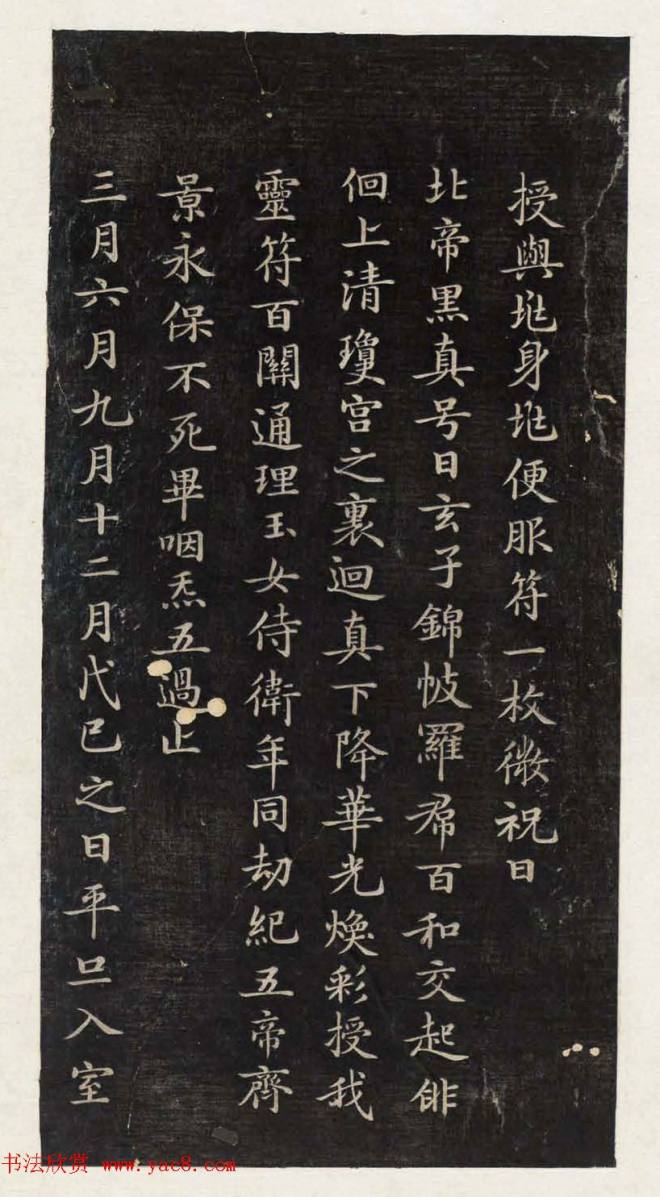 授與㘴身㘴便服符一枚微祝曰
北帝黑真号曰玄子錦帔羅帬百和交起俳
佪上清瓊宮之裏迴真下降華光煥彩授我
靈符百關通理玉女侍衛年同劫紀五帝齊
景永保不死畢咽炁五過止
三月六月九月十二月戊巳之日平旦入室
书法欣赏 www.yac8.com